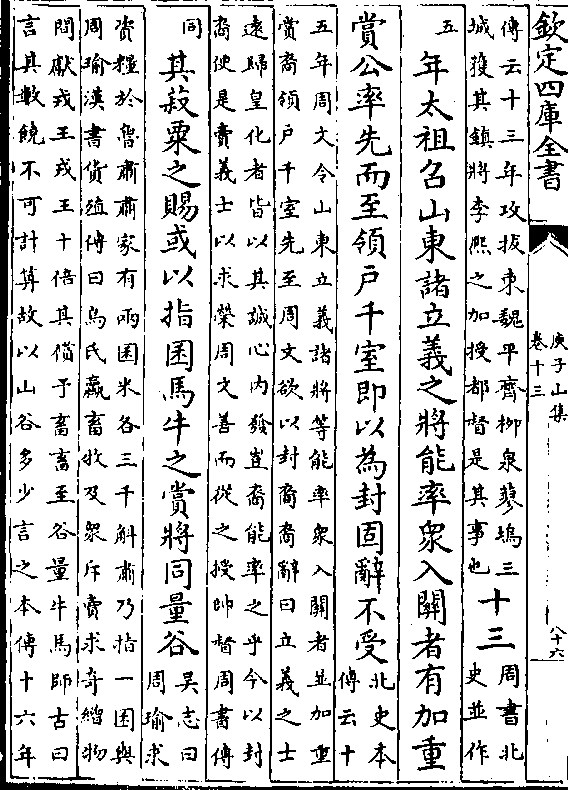 欽定四庫全書
庚子山集
卷十三
八十六
傳云十三年攻拔東魏平齊柳泉蓼塢三
城獲其鎮將李熈之加授都督是其事也
十三
周書北
史並作
五
年太祖召山東諸立義之將能率衆入關者有加重
賞公率先而至領户千室即以為封固辭不受
北史本
傳云十
五年周文令山東立義諸將等能率衆入關者並加重
賞裔領户千室先至周文欲以封裔裔辭曰立義之士
逺歸皇化者皆以其誠心内發豈裔能率之乎今以封
裔便是賣義士以求榮周文善而從之授帥督周書傳
同
其菽粟之賜或以指囷馬牛之賞將同量谷
吴志曰
周瑜求
資糧於魯肅肅家有兩囷米各三千斛肅乃指一囷與
周瑜漢書貨殖傳曰烏氏蠃畜牧及衆斥賣求奇繒物
間獻戎王戎王十倍其償予畜畜至谷量牛馬師古曰
言其數饒不可計算故以山谷多少言之本傳十六年